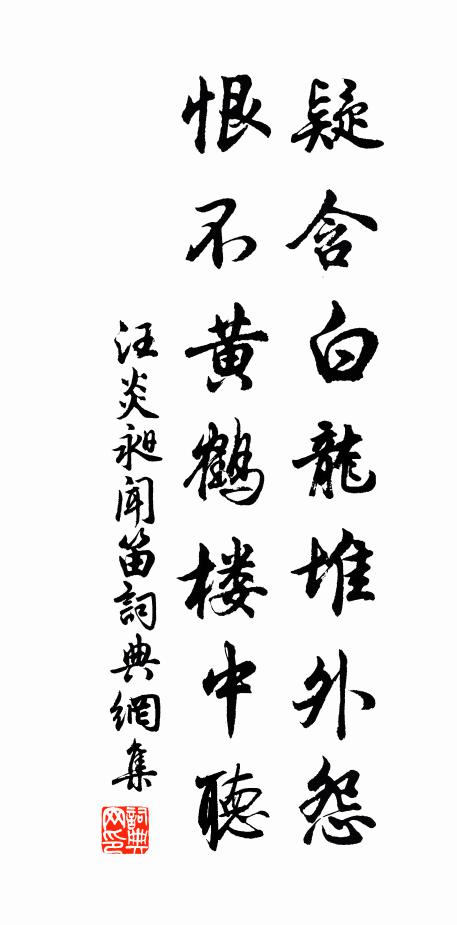 疑含白龍堆外怨
恨不黄鶴楼中聴
汪炎昶聞笛詞典網集
詞典网印